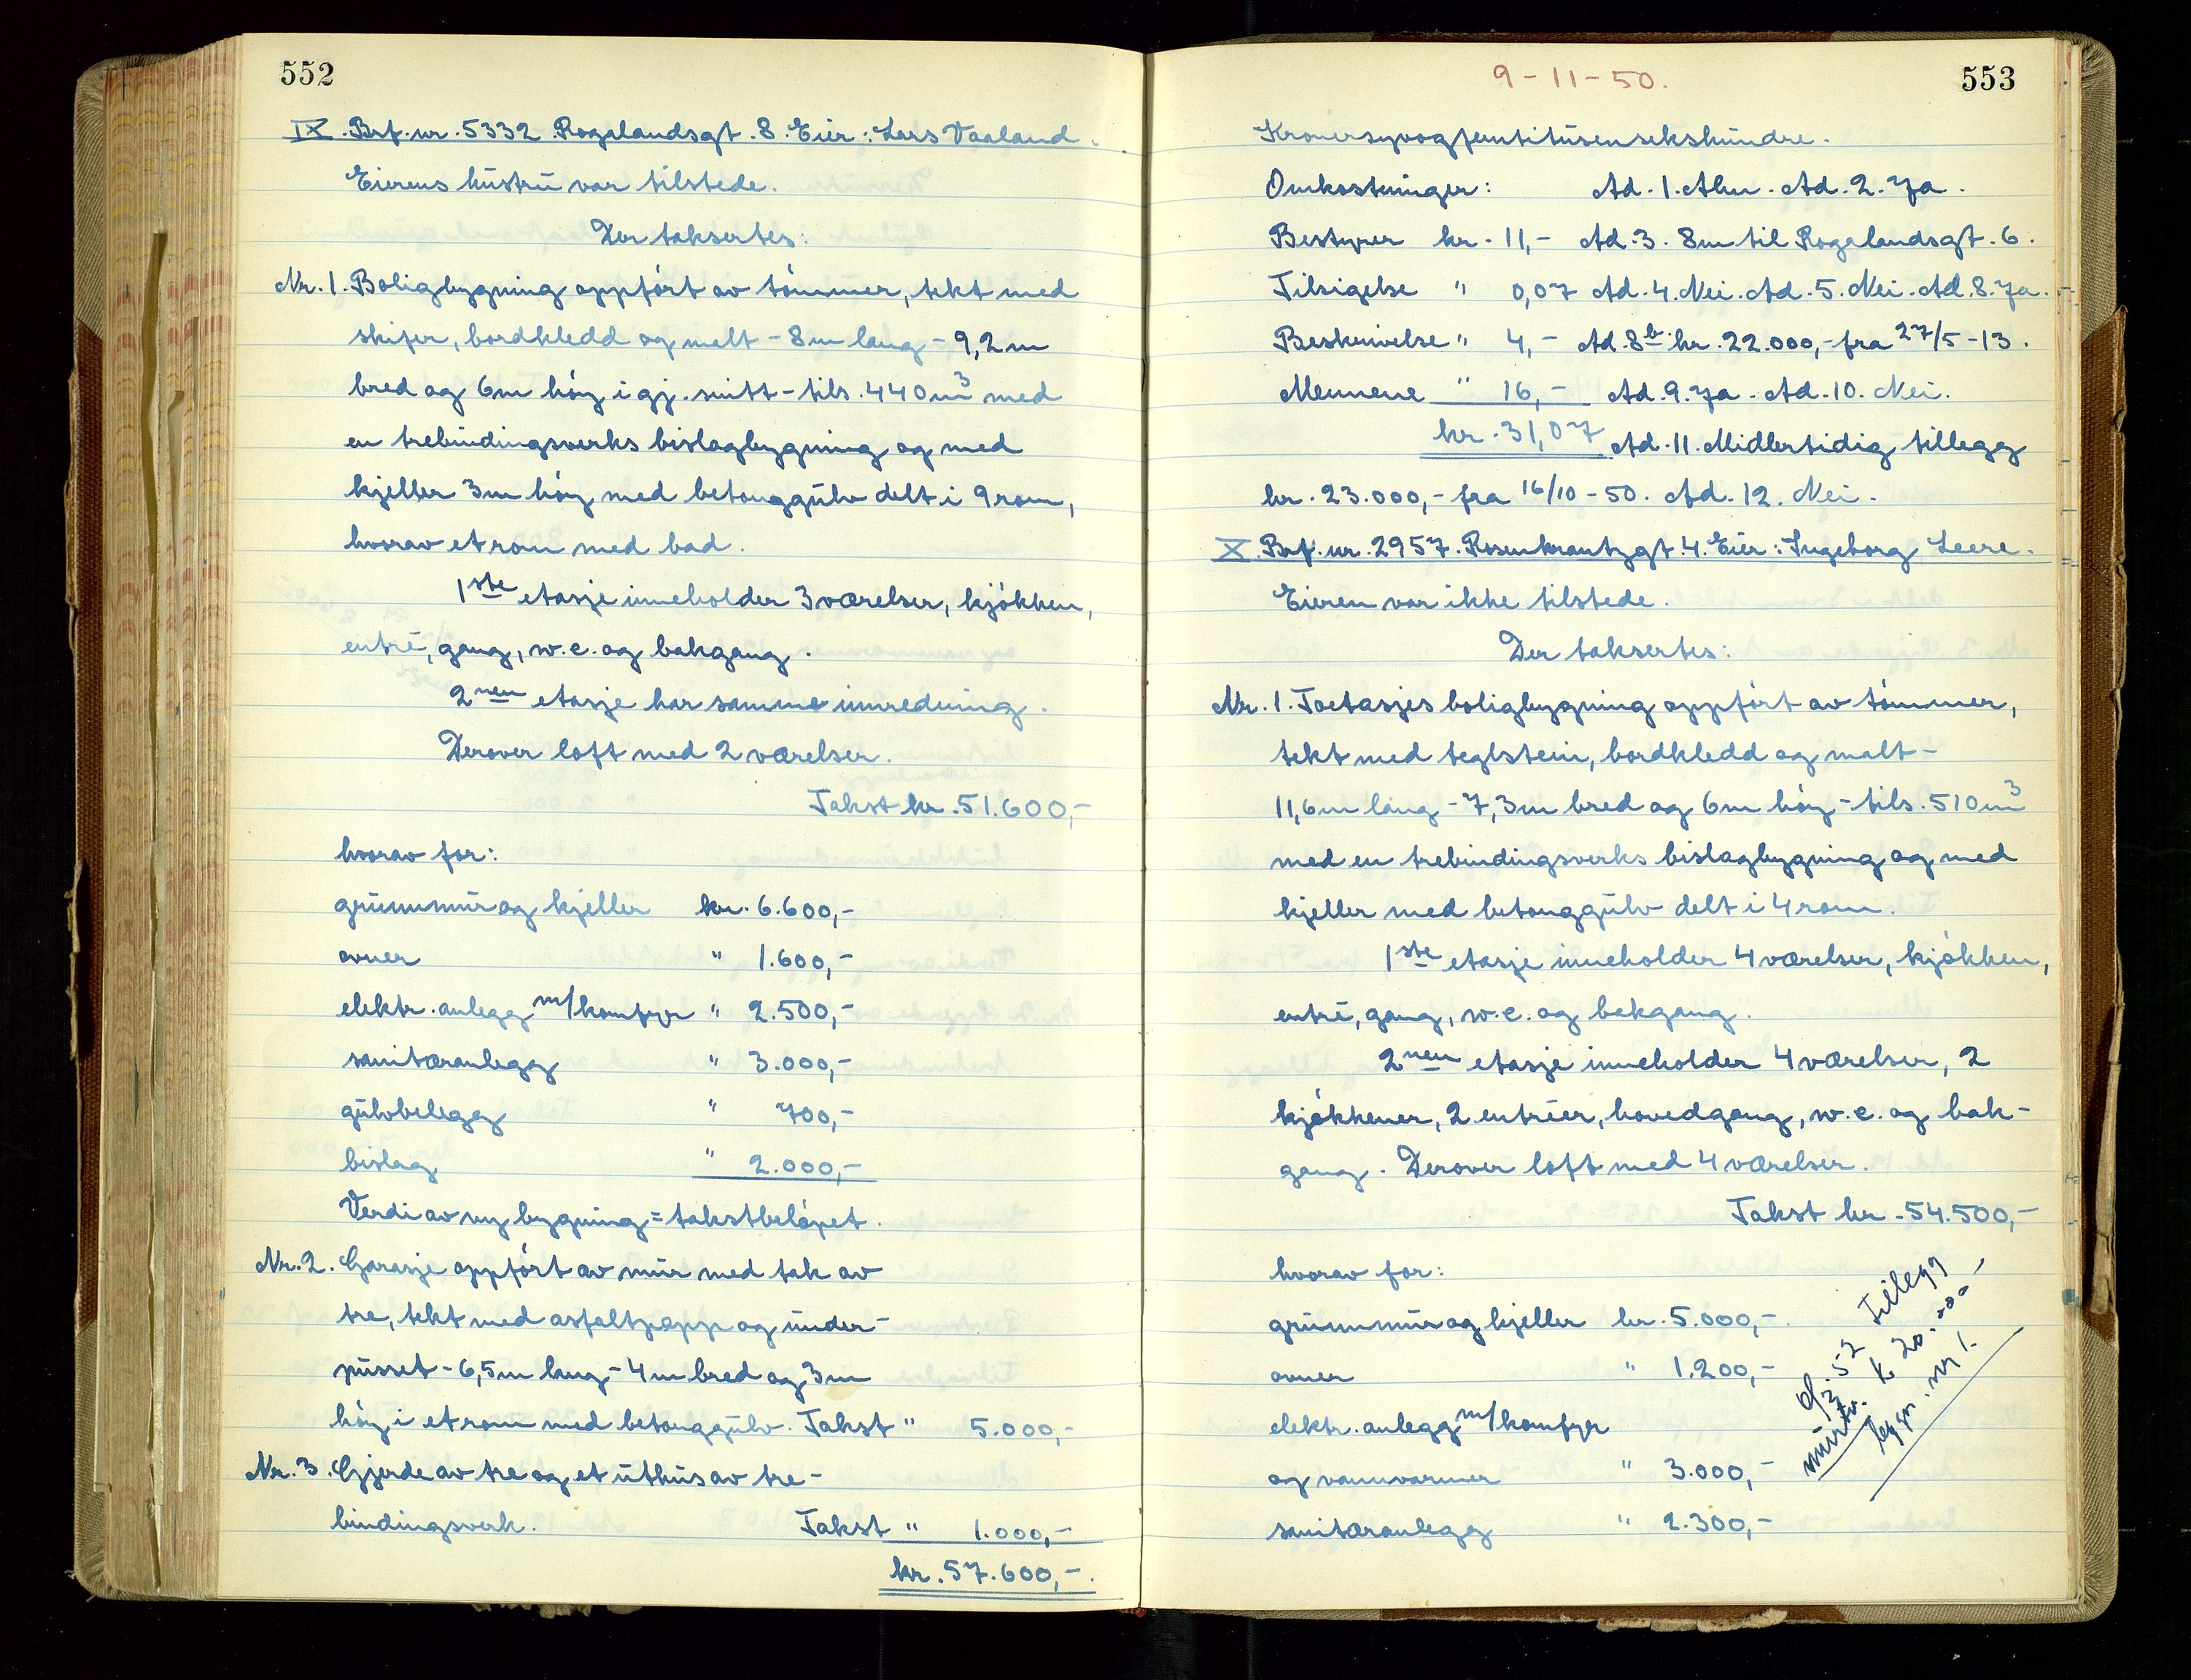 552
IX. Brf. nr. 5332 Rogalandsgt. 8. Eier: Lars Vaaland.
Eierens hustru var tilstede.
Der taksertes:
Nr. 1. Boligbygning oppført av tømmer, tekt med
skifer, bordkledd og malt - 8m lang - 9,2 m
bred og 6m høy i gj. snitt - tils. 440 m³ med
en trebindingsverks bislagbygning og med
kjeller 3m høy med betonggulv delt i 9 rom,
hvorav et rom med bad.
1ste etasje inneholder 3 værelser, kjøkken,
entré, gang, w.c. og bakgang.
2nen etasje har samme innredning.
Derover loft med 2 værelser.
Takst kr. 51.600,-
hvorav for:
grunnmur og kjeller kr. 6.600,-
ovner " 1.600,-
elektr. anlegg m/komfyr " 2.500,-
sanitæranlegg " 3.000,-
gulvbelegg " 700,-
bislag " 2.000,-
Verdi av ny bygning = takstbeløpet.
Nr. 2. Garasje oppført av mur med tak av
tre, tekt med asfaltpapp og under-
pusset - 6,5m lang - 4m bred og 3m
høy i et rom med betonggulv. Takst " 5.000,-
Nr. 3. Gjerde av tre og et uthus av tre-
bindingsverk. Takst " 1.000,-
kr. 57.600,-.
9-11-50.
553
Kronersyvogfemtitusensekshundre.
Omkostninger: Ad. 1. Alm. Ad. 2. Ja.
Bestyrer kr. 11,- Ad. 3. 8m til Rogalandsgt. 6.
Tilsigelse " 0,07 Ad. 4. Nei. Ad. 5. Nei. Ad. 8. Ja.
Beskrivelse " 4,- Ad. 8b kr. 22.000,- fra 27/5-13.
Mennene " 16,- Ad. 9. Ja. Ad. 10. Nei.
kr. 31,07 Ad. 11. Midlertidig tillegg
kr. 23.000,- fra 16/10-50. Ad. 12. Nei.
X. Brf. nr. 2957. Rosenkrantzgt. 4. Eier: Ingeborg Leere.
Eieren var ikke tilstede.
Der taksertes:
Nr. 1. Toetasjes boligbygning oppført av tømmer,
tekt med teglstein, bordkledd og malt -
11,6m lang - 7,3m bred og 6m høy - tils. 510m³
med en trebindingsverks bislagbygning og med
kjeller med betonggulv delt i 4 rom.
1ste etasje inneholder 4 værelser, kjøkken,
entré, gang, w.c. og bakgang.
2nen etasje inneholder 4 værelser, 2
kjøkkener, 2 entréer, hovedgang, w.c. og bak-
gang. Derover loft med 4 værelser.
Takst kr. 54.500,-
hvorav for:
grunnmur og kjeller kr. 5.000,-
ovner " 1.200,-
elektr. anlegg m/komfyr
og vannvarmer " 3.000,-
sanitæranlegg " 2.300,-
52 Tillegg
k 20.000-
bygn. nr 1.